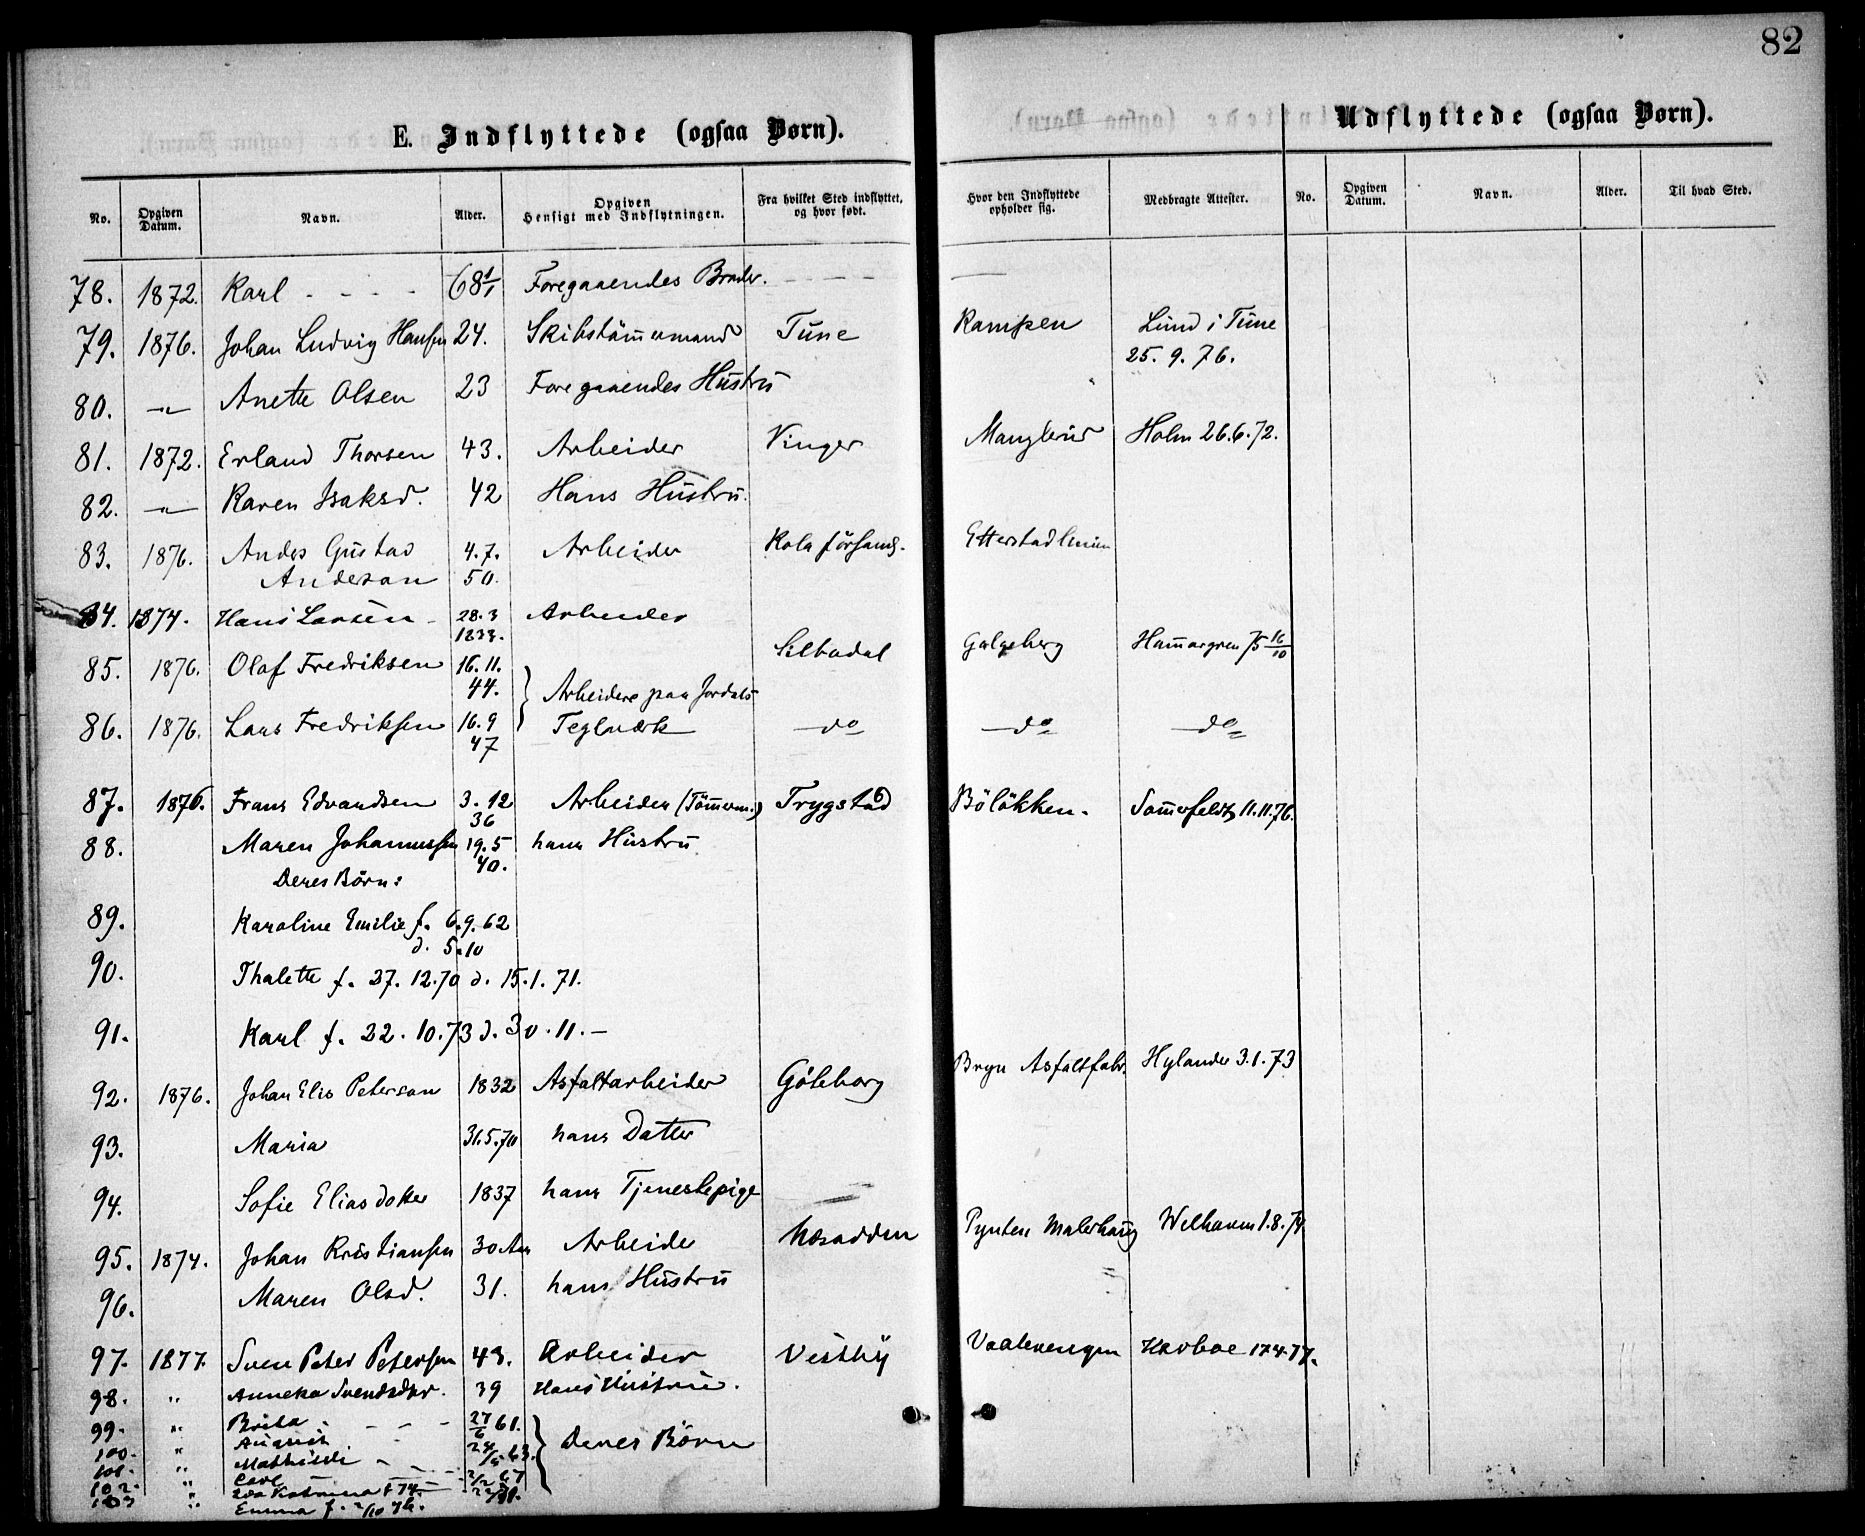 82
E. Indflyttede (ogsaa Børn).
Udflyttede (ogsaa Børn).
No. Opgiven Datum. Navn. Alder. Opgiven Hensigt med Indflytningen. Fra hvilket Sted indflyttet, og hvor født. Hvor den Indflyttede opholder sig. Medbragte Attester. No. Opgiven Datum. Navn. Alder. Til hvad Sted.
78. 1872. Karl - - - - 68 1/1 Foregaaendes Broder. - - - -
79. 1876. Johan Ludvig Hansen 24. Skibstömmermand Tune Kampen Lund i Tune
25. 9. 76.
80. -"- Anette Olsen 23 Foregaaendes Hustru
81. 1872. Erland Thorsen 43. Arbeider Vinger Manglerud Holm 26.6.72.
82. -"- Karen Isaksd. 42 Hans Hustru.
83. 1876. Andes Gustav 4.7. Arbeider Kola församl. Etterstadlinien
Anderson 50.
84. 1874. Hans Larsen - 28.3 Arbeider
1833.
85. 1876. Olaf Fredriksen 16.11. Silbodal Galgeberg Hammargren 75 16/10
44. Arbeidere paa Jordals
86. 1876. Lars Fredriksen 16.9 Teglværk -do- -do- -do-
47
87. 1876. Frans Edvardsen 3.12 Arbeider (Tömmerm.) Trygstad Bölökken. Sommerfeldt 11.11.76.
36
88. Maren Johannessen 19.5 hans Hustru
40.
Deres Börn:
89. Karoline Emilie f. 6.9.62
d. 5.10
90. Thalette f. 27.12.70 d. 15.1.71.
91. Karl f. 22.10.73 d. 30.11.-
92. 1876. Johan Elis Peterson 1832 Asfaltarbeider Göteborg Bryn Asfaltfabr. Hylander 3.1.73
93. Maria 31.5.70 hans Datter
94. Sofie Eliasdotter 1837 hans Tjenestepige
95. 1874. Johan Kristiansen 30 Aar Arbeider Næsodden Pynten Malerhaug Welhaven 1.8.74
96. Maren Olsd. 31. hans Hustru
97. 1877. Sven Peter Petersen 43. Arbeider Vestby Vaalerengen Harboe 17.4.77.
98. " Anneka Svendsdtr. 39 Hans Hustru.
99. " Brita - - - - 27/6 61.
100. " August 24/5 63. Deres Börn
101. " Mathilde - - 2/2 67
102. " Carl
103 " Ida Katrina f 74
" Emma f. 2/10 76.